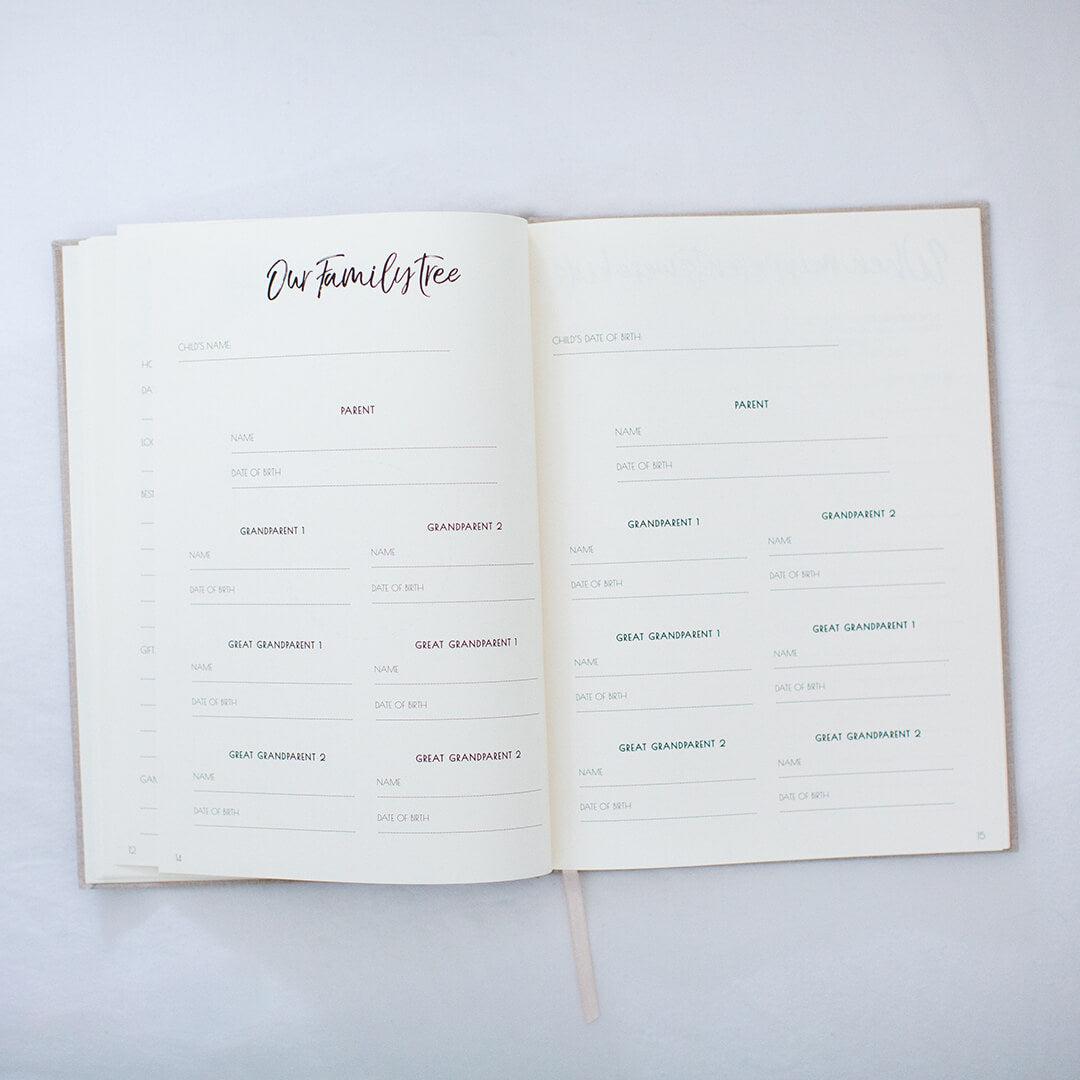 Our Family Tree
CHILD'S NAME:
PARENT
NAME
DATE OF BIRTH
GRANDPARENT 1 GRANDPARENT 2
NAME NAME
DATE OF BIRTH DATE OF BIRTH
GREAT GRANDPARENT 1 GREAT GRANDPARENT 1
NAME NAME
DATE OF BIRTH DATE OF BIRTH
GREAT GRANDPARENT 2 GREAT GRANDPARENT 2
NAME NAME
DATE OF BIRTH DATE OF BIRTH
12
14
CHILD'S DATE OF BIRTH:
PARENT
NAME
DATE OF BIRTH
GRANDPARENT 1 GRANDPARENT 2
NAME NAME
DATE OF BIRTH DATE OF BIRTH
GREAT GRANDPARENT 1 GREAT GRANDPARENT 1
NAME NAME
DATE OF BIRTH DATE OF BIRTH
GREAT GRANDPARENT 2 GREAT GRANDPARENT 2
NAME NAME
DATE OF BIRTH DATE OF BIRTH
15